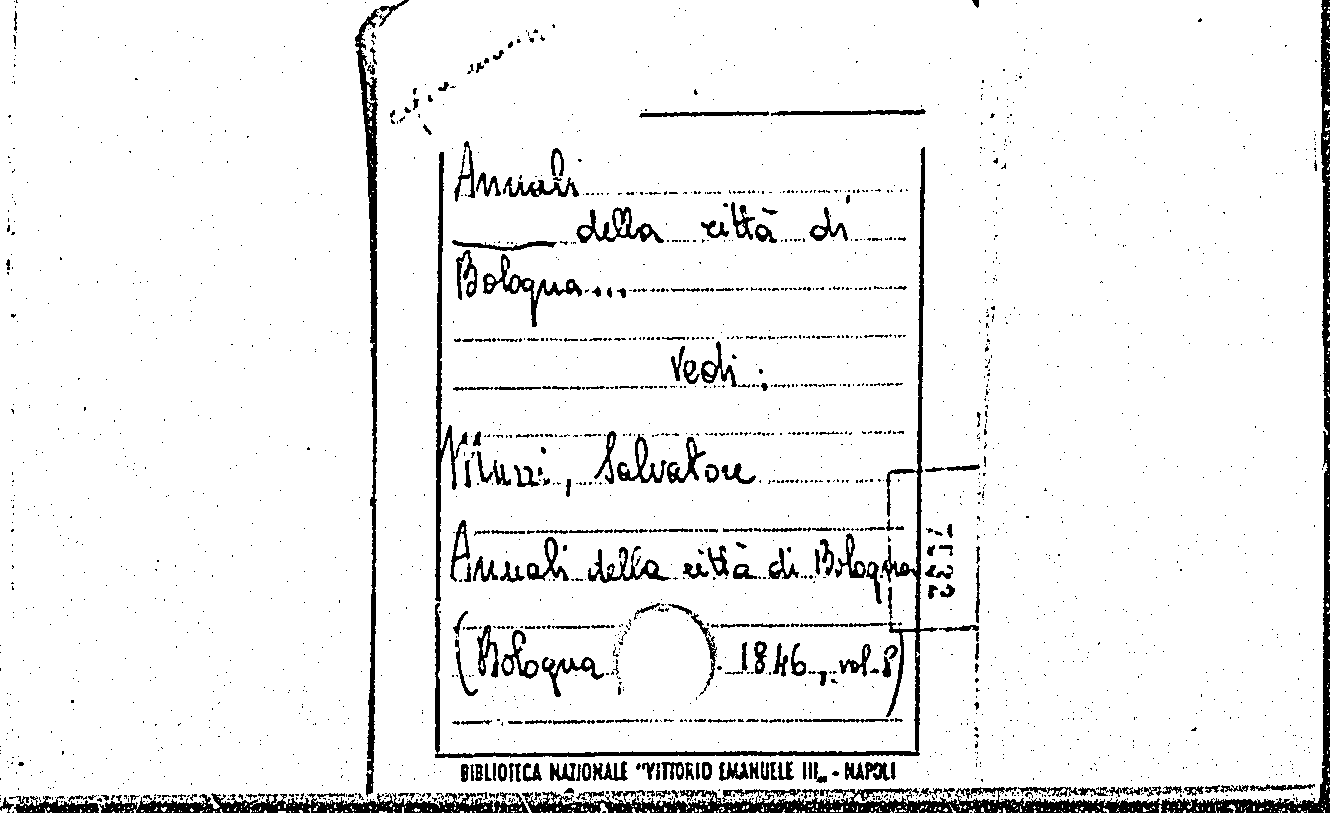 Annali
della città di
Bologna...
Vedi:
Muzzi, Salvatore
Annali della città di Bologna
(Bologna 1846, vol. 8)
BIBLIOTECA NAZIONALE "VITTORIO EMANUELE III„ - NAPOLI